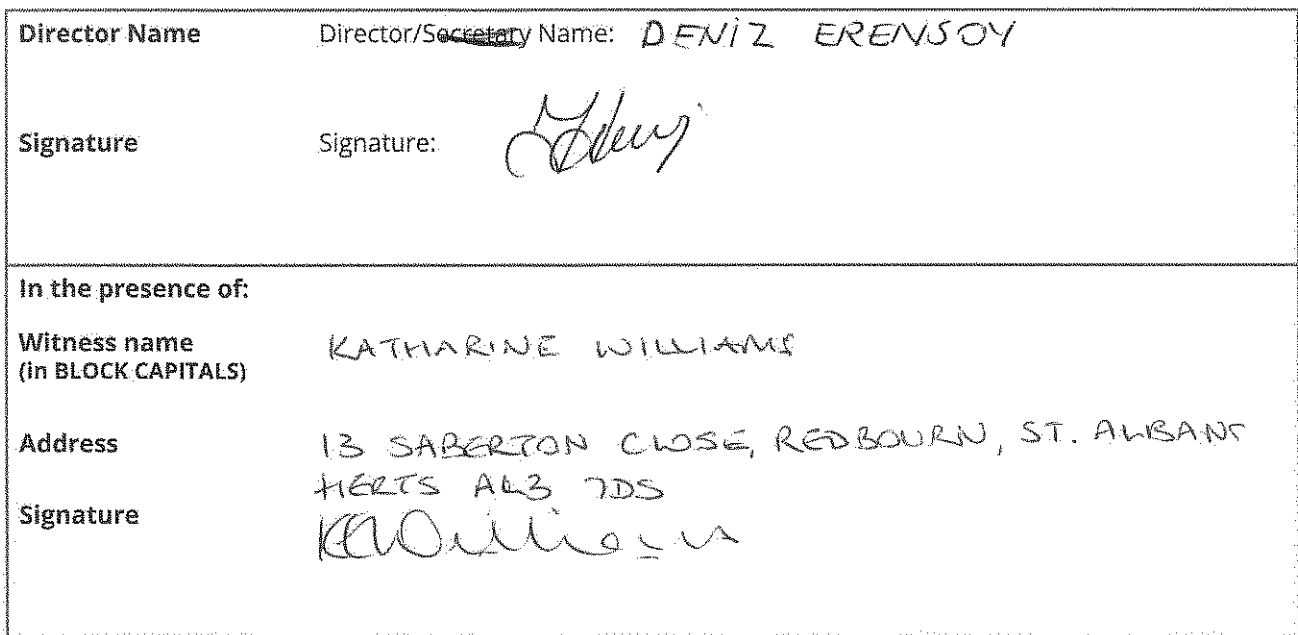 Director Name Director/Secretary Name: DENIZ ERENSOY
Signature Signature:
In the presence of:
Witness name KATHARINE WILLIAMS
(in BLOCK CAPITALS)
Address 13 SABERTON CLOSE, REDBOURN, ST. ALBANS
HERTS AL3 7DS
Signature